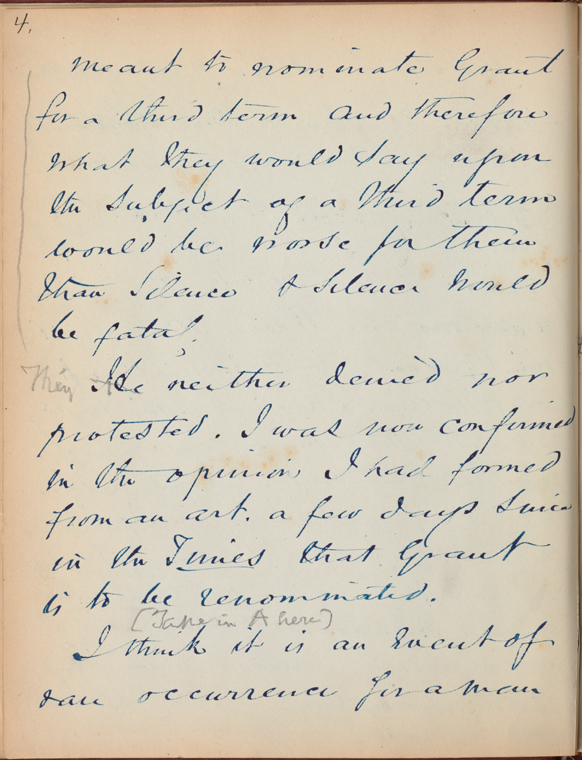 4.
meant to nominate Grant
for a third term and therefore
what they would say upon
the subject of a third term
would be worse for them
than silence & silence would
be fatal.
They He neither denied nor
protested. I was now confirmed
in the opinion I had formed
from an art. a few days since
in the Times that Grant
is to be renominated.
(Take in A here)
I think it is an event of
rare occurrence for a man